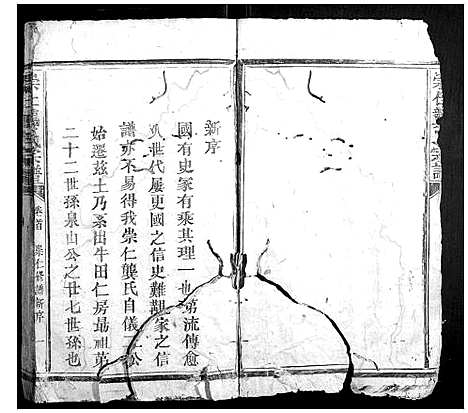 新序
國有史家有乘其理一也第流傳愈
久世代屢更國之信史難覯家之信
譜亦不易得我崇仁龔氏自儀二公
始遷兹土乃系出牛田仁房最祖第
二十二世孫泉山公之廿七世孫也
崇仁龔氏宗譜
卷首
崇仁修譜新序
一
崇仁龔氏宗譜